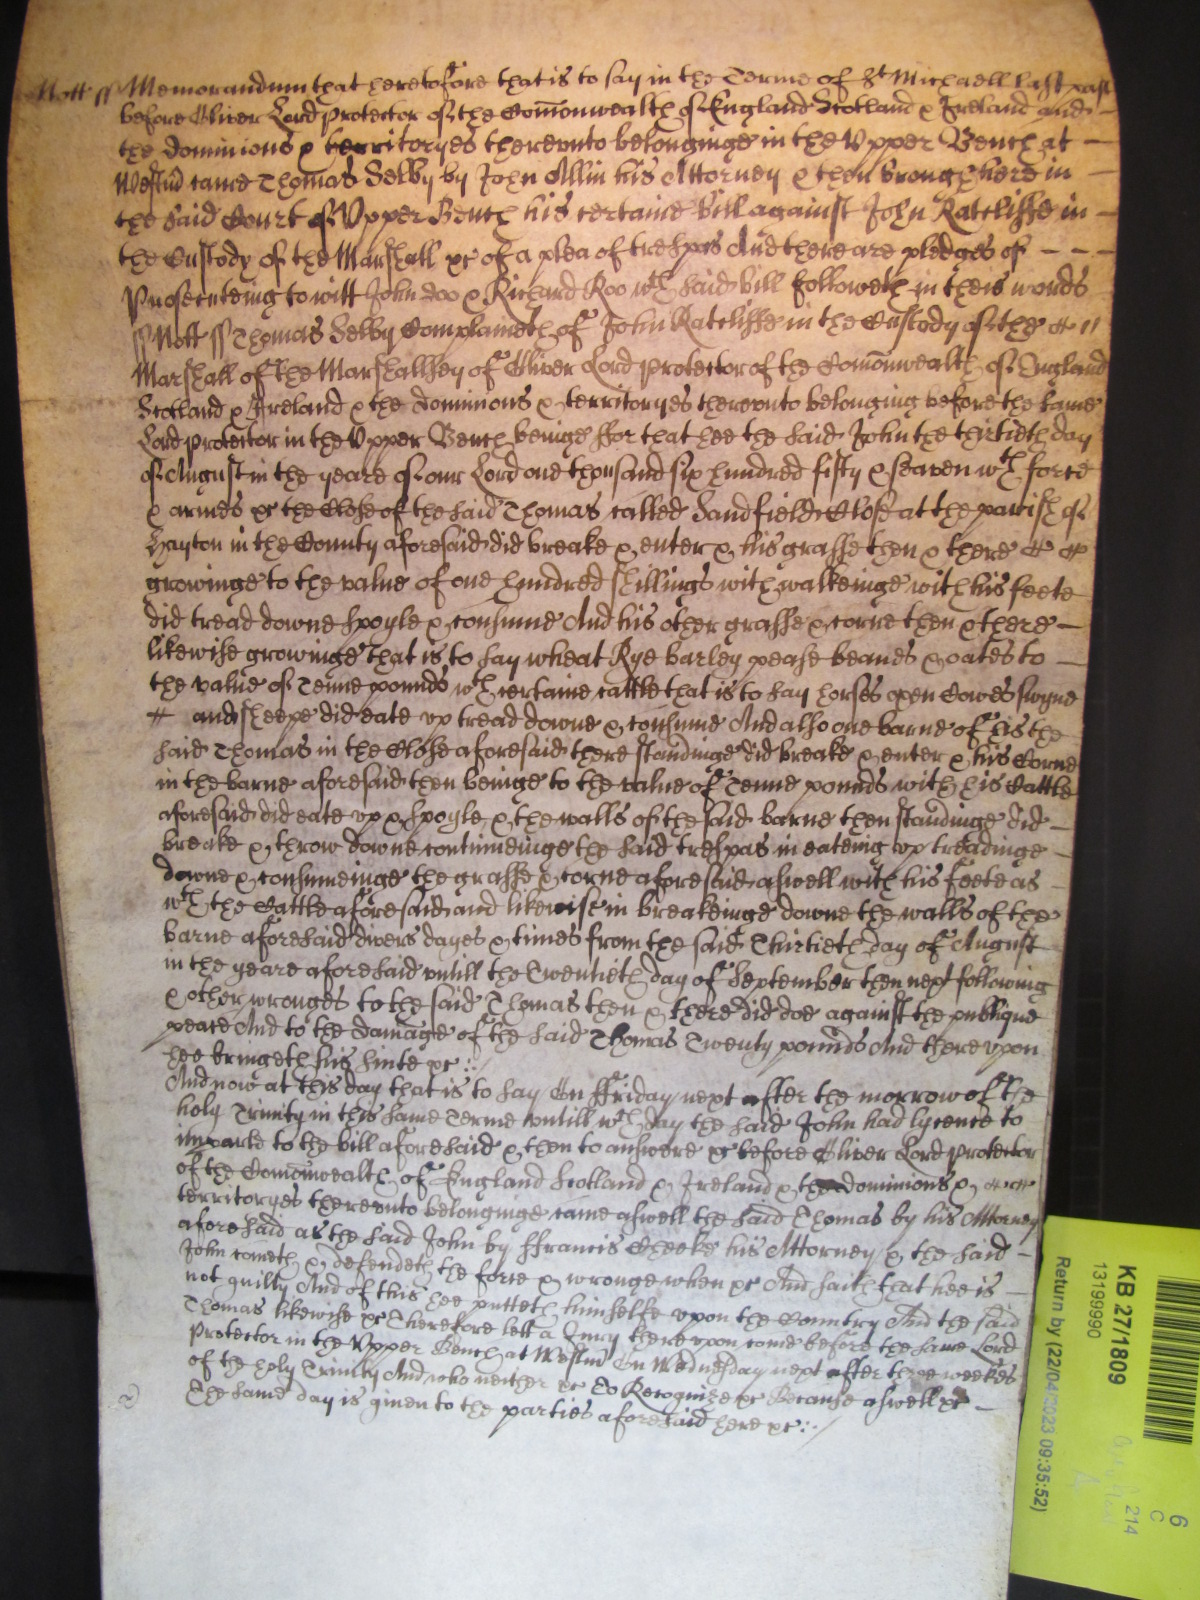 Nott ss Memorandum that heretofore that is to say in the Terme of St Michaell last past
before Oliver Lord Protector of the Comonwealth of England Scotland & Ireland and
the dominions & territoryes thereunto belonginge in the Upper Bench at
Westm came Thomas Selby by John Allin his Attorney & then brought here in
the said Court of Upper Bench his certaine bill against John Ratcliffe in
the Custody of the Marshall &c of a plea of trespas And there are pledges of
Prosecuteing to witt John doo & Richard Roo wch said bill followeth in theis words
ss Nott ss Thomas Selby Complaineth of John Ratcliffe in the Custody of the
Marshall of the Marshallsey of Oliver Lord Protector of the Comonwealth of England
Scotland & Ireland & the dominions & territoryes thereunto belonging before the same
Lord Protector in the Upper Bench beinge ffor that hee the said John the thirtieth day
of August in the yeare of our Lord one thousand six hundred fifty & seaven wth force
& armes &c the Close of the said Thomas called Sandfield Close at the parish of
Hayton in the County aforesaid did breake & enter & his grasse then & there
growinge to the value of one hundred shillings with walkeinge with his feete
did tread downe spoyle & consume And his other grasse & corne then & there
likewise growinge That is to say wheat Rye barley pease beanes & oates to
the value of Tenne pounds wth certaine cattle that is to say horses oxen Cowes swyne
and sheepe did eate up tread downe & consume And also one barne of his the
said Thomas in the Close aforesaid there standinge did breake & enter & his Corne
in the barne aforesaid then beinge to the value of Tenne pounds with his Cattle
aforesaid did eate up & spoyle & the walls of the said barne then standinge did
breake & throw downe continueinge the said trespas in eateing up treadinge
downe & consumeinge the grasse & corne aforesaid aswell with his feete as
wth the Cattle aforesaid and likewise in breakeinge downe the walls of the
barne aforesaid divers dayes & times from the said Thirtieth day of August
in the yeare aforesaid untill the Twentieth day of September then next following
& other wronges to the said Thomas then & there did doe against the publique
peace And to the damage of the said Thomas Twenty pounds And thereupon
hee bringeth his suite &c
And now at this day that is to say On ffriday next after the morrow of the
holy Trinity in this same Terme untill wch day the said John had lycence to
imparle to the bill aforesaid & then to answere &c before Oliver Lord Protector
of the Comonwealth of England Scotland & Ireland & the dominions &
territoryes thereunto belonginge came aswell the said Thomas by his Attorney
aforesaid as the said John by ffrancis Cheeke his Attorney & the said
John cometh & defendeth the force & wronge when &c And saith that hee is
not guilty And of this hee putteth himselfe upon the Country And the said
Thomas likewise &c Therefore lett a Jury thereupon come before the same Lord
Protector in the Upper Bench at Westm On Wednesday next after three weekes
of the holy Trinity And who neither &c To Recognize &c Because aswell &c
The same day is given to the parties aforesaid here &c
KB 27/1809
13199990
Return by (22/04/2023 09:35:52)
6
C
214